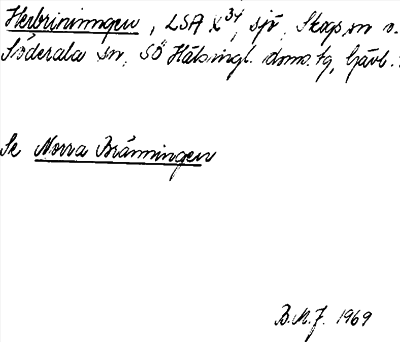 Herbrinningen, LSA X 34, sjö, Skogs sn o.
Söderala sn, SÖ Hälsingl. doms. tg, Gävl.
Se Norra Bränningen
B.M.J. 1969